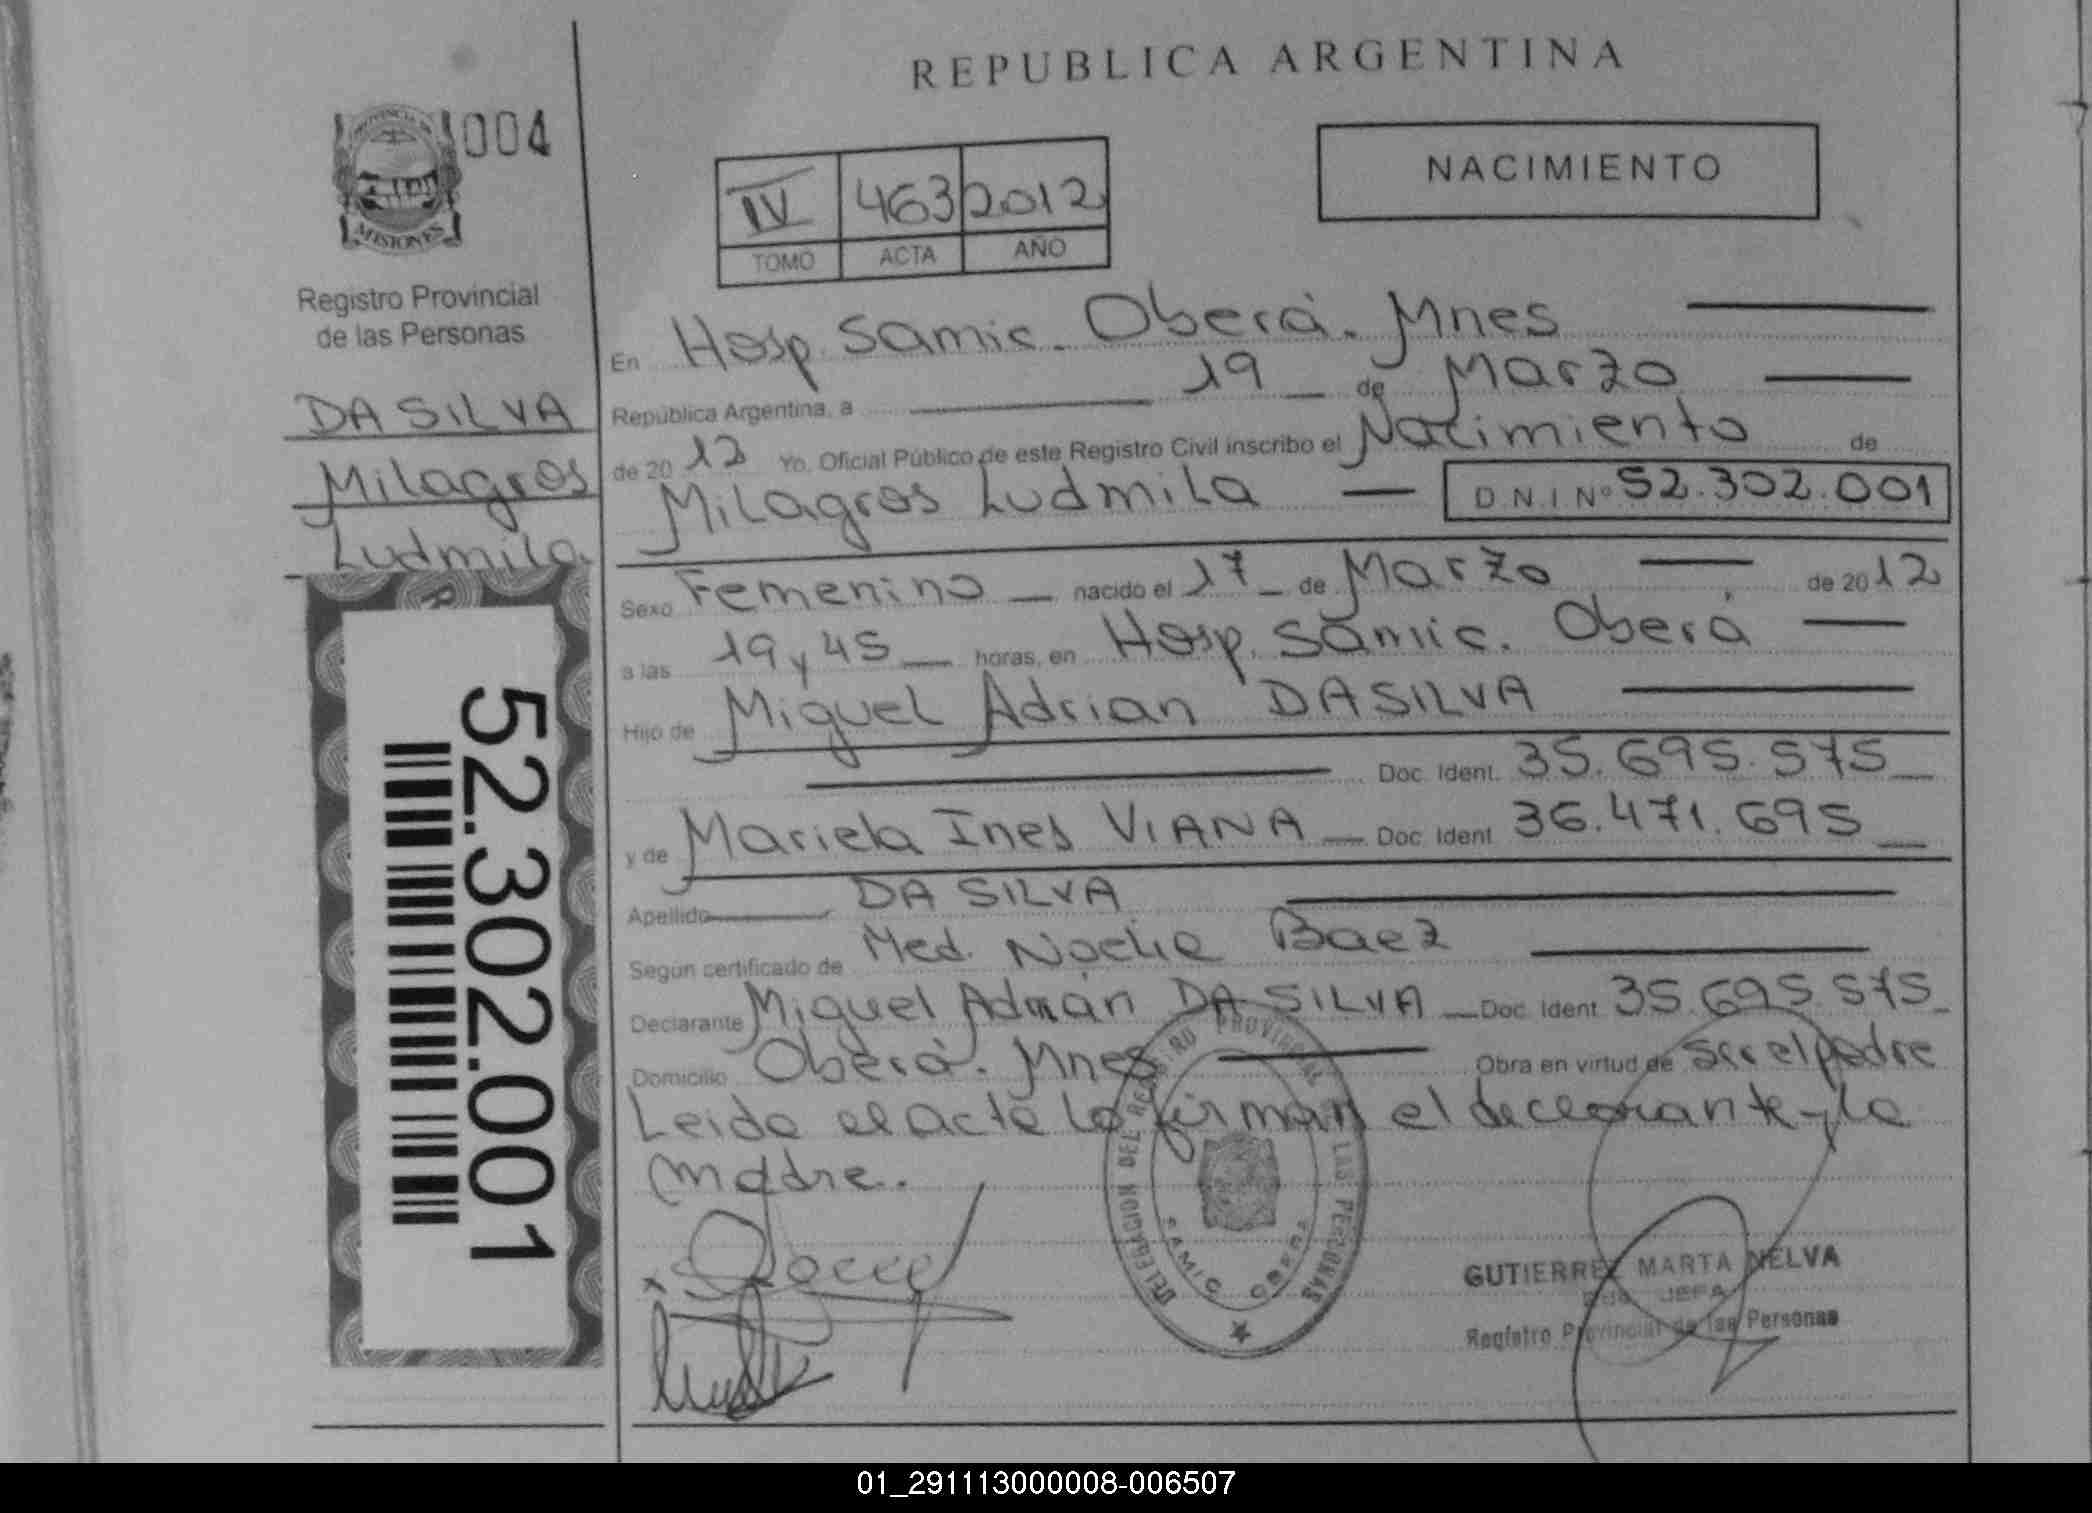 REPUBLICA ARGENTINA
004
MISIONES
Registro Provincial
de las Personas
DA SILVA
Milagros
Ludmila
52.302.001
IV 463 2012
TOMO ACTA AÑO
NACIMIENTO
En Hosp. Samic. Oberá. Mnes
República Argentina, a 19 de Marzo
de 2012 Yo, Oficial Público de este Registro Civil inscribo el Nacimiento de
Milagros Ludmila D.N.I Nº 52.302.001
Sexo Femenino nacido el 17 de Marzo de 2012
a las 19 y 45 horas, en Hosp. Samic. Oberá
Hijo de Miguel Adrian DA SILVA
Doc. Ident. 35.695.575
y de Mariela Ines VIANA Doc. Ident. 36.471.695
Apellido DA SILVA
Según certificado de Med. Noelia Baez
Declarante Miguel Adrián DA SILVA Doc. Ident. 35.695.575
Domicilio Oberá. Mnes Obra en virtud de ser el padre
Leida el acta la firman el declarante y la
madre.
DELEGACION DEL REGISTRO PROVINCIAL DE LAS PERSONAS
SAMIC OBERA
GUTIERREZ MARTA NELVA
JEFA
Registro Provincial de las Personas
01_291113000008-006507